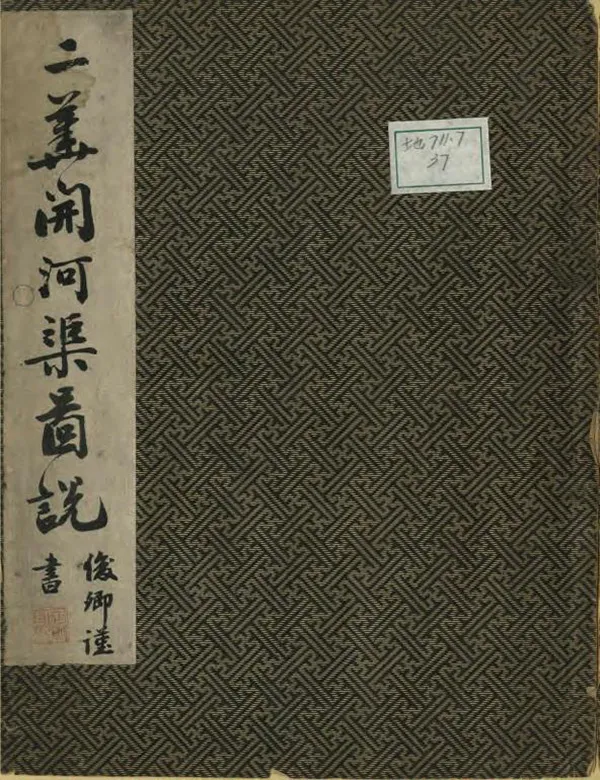 二開河渠圖說
俊卿謹
書
地 711.7
37